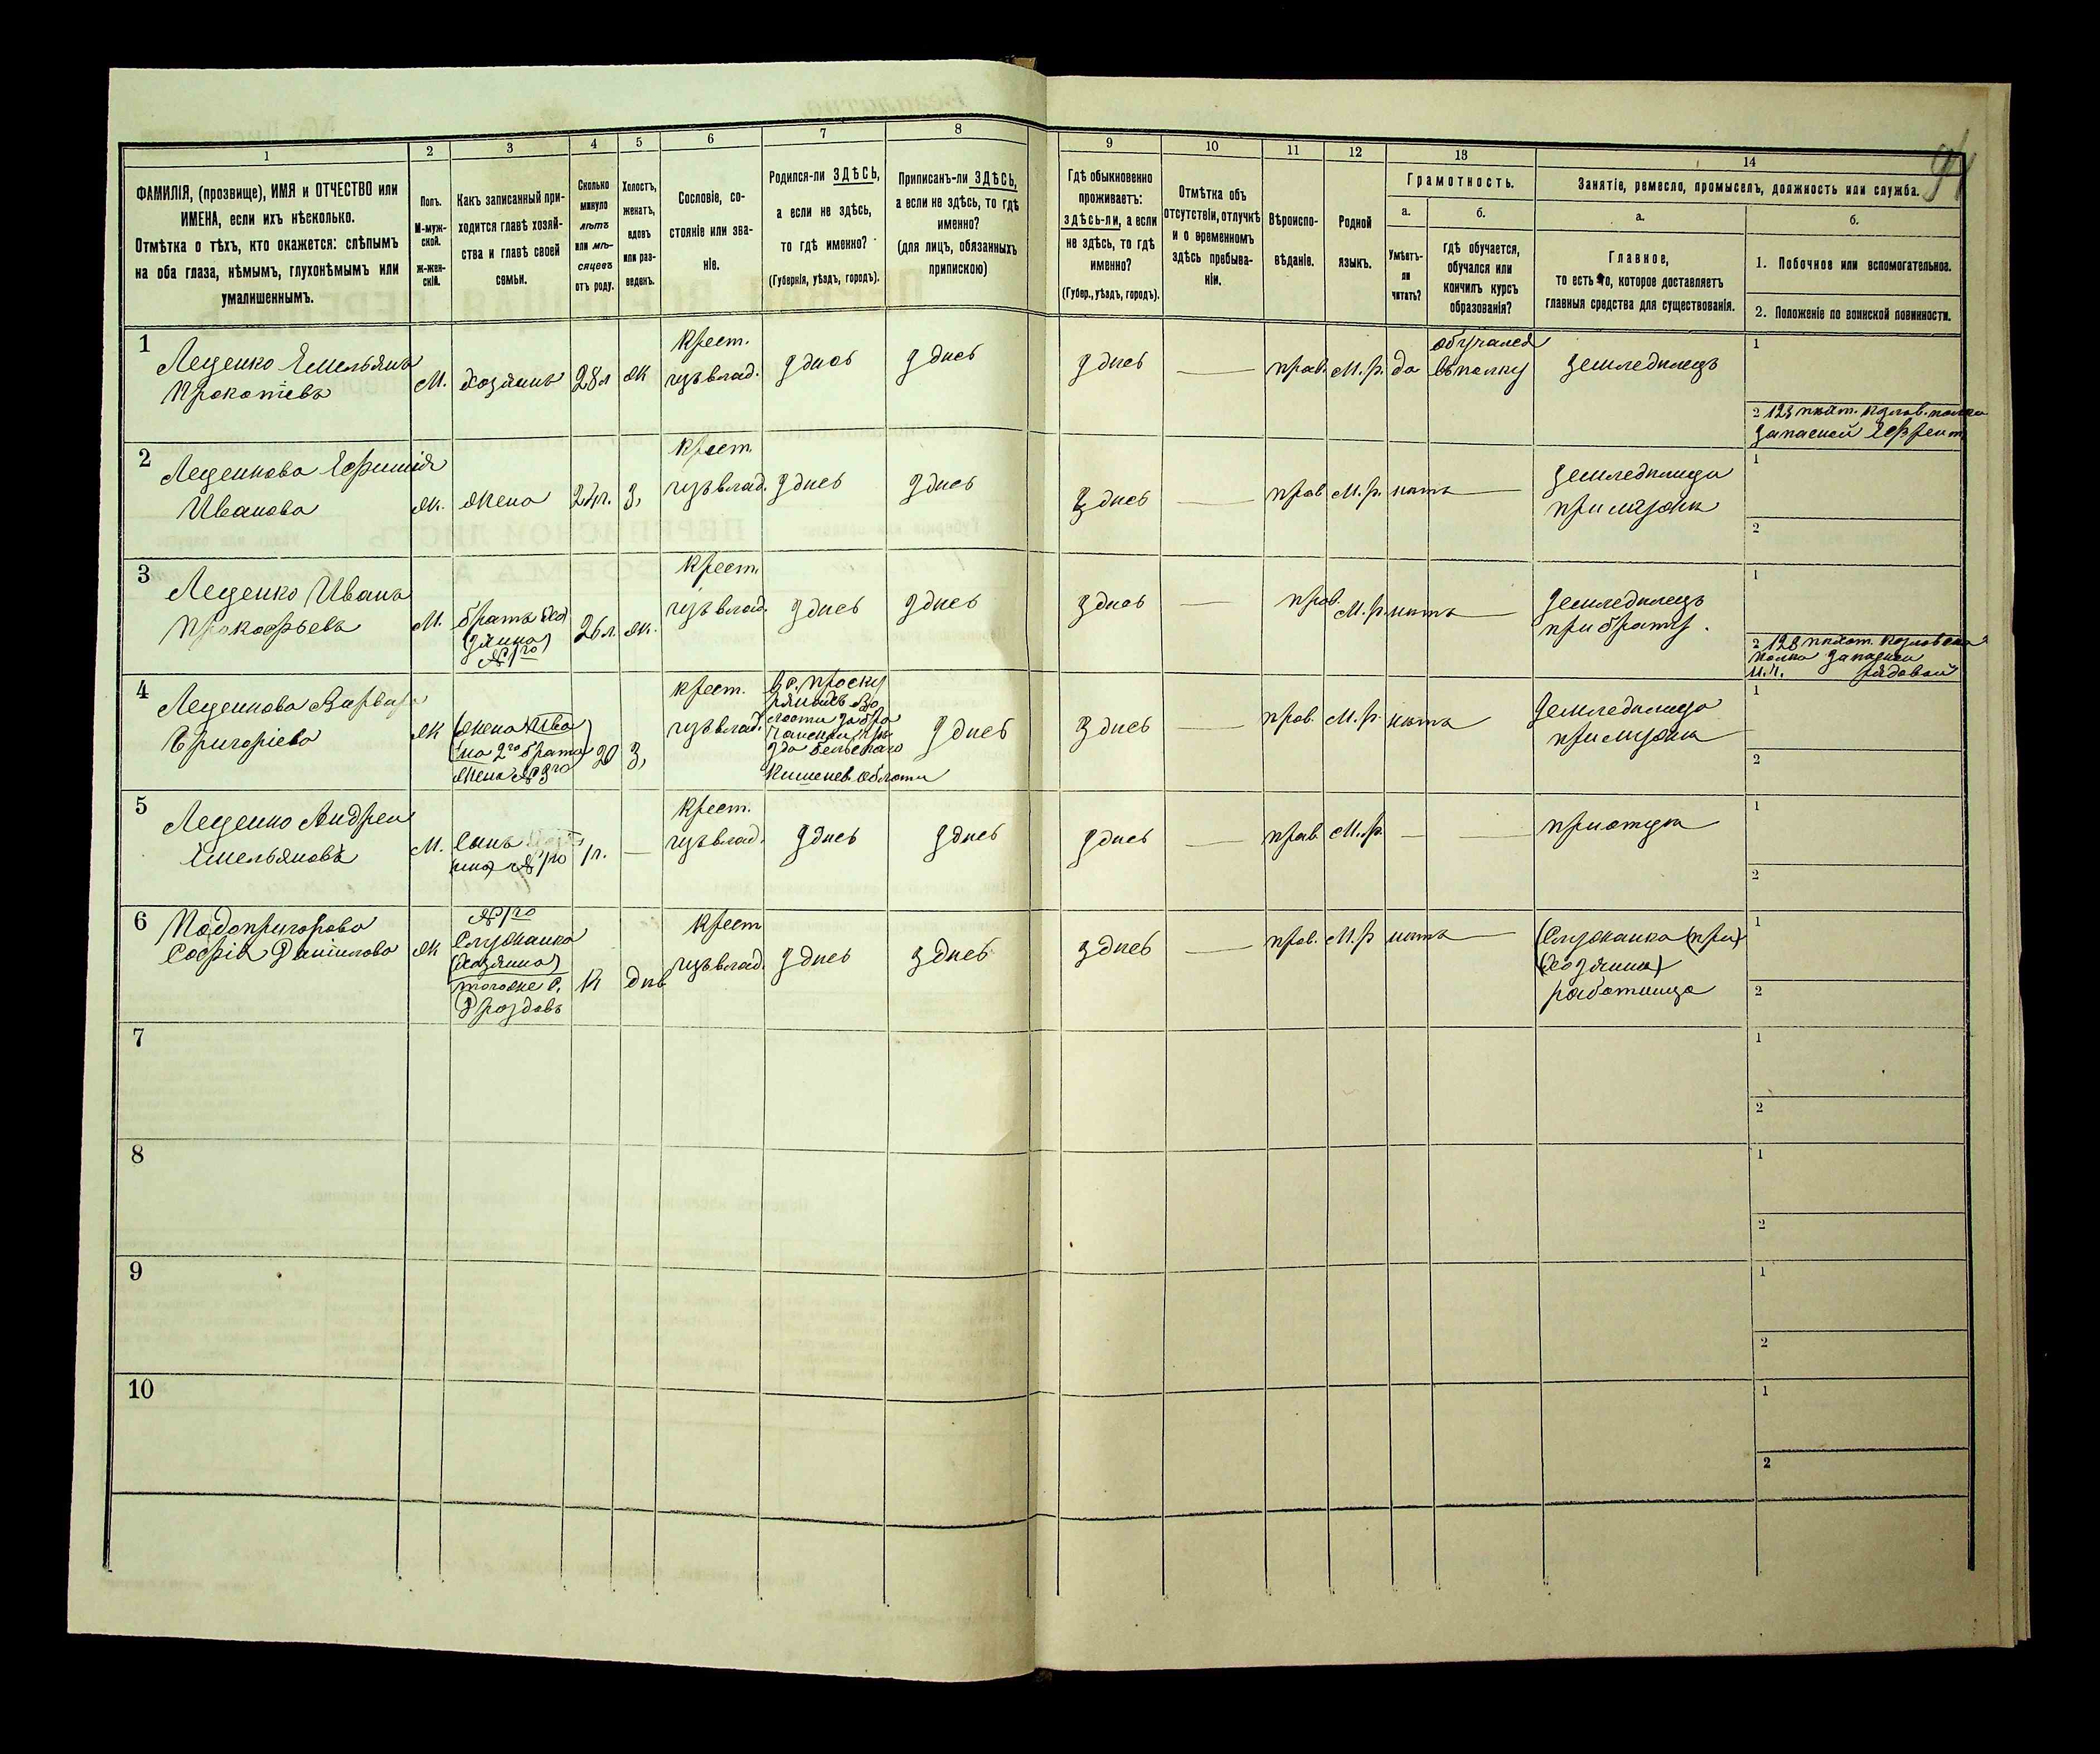 1
2
3
4
5
6
7
8
9
10
11
12
13
14
ФАМИЛІЯ, (прозвище), ИМЯ и ОТЧЕСТВО или
ИМЕНА, если ихъ нѣсколько.
Отмѣтка о тѣхъ, кто окажется: слѣпымъ
на оба глаза, нѣмымъ, глухонѣмымъ или
умалишеннымъ.
Полъ.
М-муж-
ской.
Ж-жен-
скій.
Какъ записанный при-
ходится главѣ хозяй-
ства и главѣ своей
семьи.
Сколько
минуло
лѣтъ
или мѣ-
сяцевъ
отъ роду.
Холостъ,
женатъ,
вдовъ
или раз-
веденъ.
Сословіе, со-
стояніе или зва-
ніе.
Родился-ли ЗДѢСЬ,
а если не здѣсь,
то гдѣ именно?
(Губернія, уѣздъ, городъ).
Приписанъ-ли ЗДѢСЬ,
а если не здѣсь, то гдѣ
именно?
(для лицъ, обязанныхъ
припискою)
Гдѣ обыкновенно
проживаетъ:
здѣсь-ли, а если
не здѣсь, то гдѣ
именно?
(Губер., уѣздъ, городъ).
Отмѣтка объ
отсутствіи, отлучкѣ
и о временномъ
здѣсь пребыва-
ніи.
Вѣроиспо-
вѣданіе.
Родной
языкъ.
Грамотность.
а.
Умѣетъ-
ли
читать?
б.
гдѣ обучается,
обучался или
кончилъ курсъ
образованія?
Занятіе, ремесло, промыселъ, должность или служба.
а.
Главное,
то есть то, которое доставляетъ
главныя средства для существованія.
б.
1. Побочное или вспомогательное.
2. Положеніе по воинской повинности.
1
Леценко Емельянъ
Прокофіевъ
М.
хозяинъ
28 л
ж
крест.
изъ влад.
здѣсь
здѣсь
здѣсь
прав.
М. р.
да
обучался
въ полку
земледѣлецъ
1
2 123 пѣхт. Козлов. полка
запасной Ефрейт
2
Леценкова Ефимія
Иванова
ж.
жена
24 г.
З.
крест.
изъ влад.
здѣсь
здѣсь
здѣсь
прав.
М. р.
нѣтъ
земледѣлица
при мужѣ
1
2
3
Леценко Иванъ
Прокофьевъ
М.
братъ хо
(зяина)
№ 1го
26 л.
ж.
крест.
изъ влад.
здѣсь
здѣсь
здѣсь
прав.
М. р.
нѣтъ
земледѣлецъ
при братѣ.
1
2 123 пѣхот. Козловска
полка запасной
рядовой
4
Леценкова Варвара
Григоріева
ж
(жена Ива
на 2го брата)
жена № 3го
20
З.
крест.
изъ влад.
здѣсь
здѣсь
прав.
М. р.
нѣтъ
земледѣлица
при мужѣ
1
2
5
Леценко Андрей
Емельяновъ
М.
Сынъ
№ 1го
1 г.
крест.
изъ влад.
здѣсь
здѣсь
здѣсь
прав.
М. р.
при отцѣ
1
2
6
Подопригорова
Софія Даниилова
ж
№ 1го
служанка
(хозяина)
тогоже с.
Дроздовъ
крест
изъ влад.
здѣсь
здѣсь
здѣсь
прав.
М. р
нѣтъ
(служанка (при)
(хозяинѣ)
работница
1
2
7
1
2
8
1
2
9
1
2
10
1
2